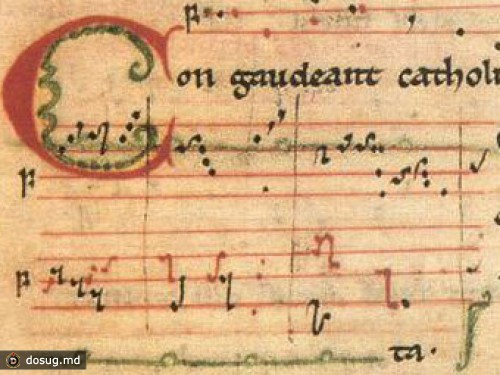 Con gaudeant catholi
ta.
dosug.md